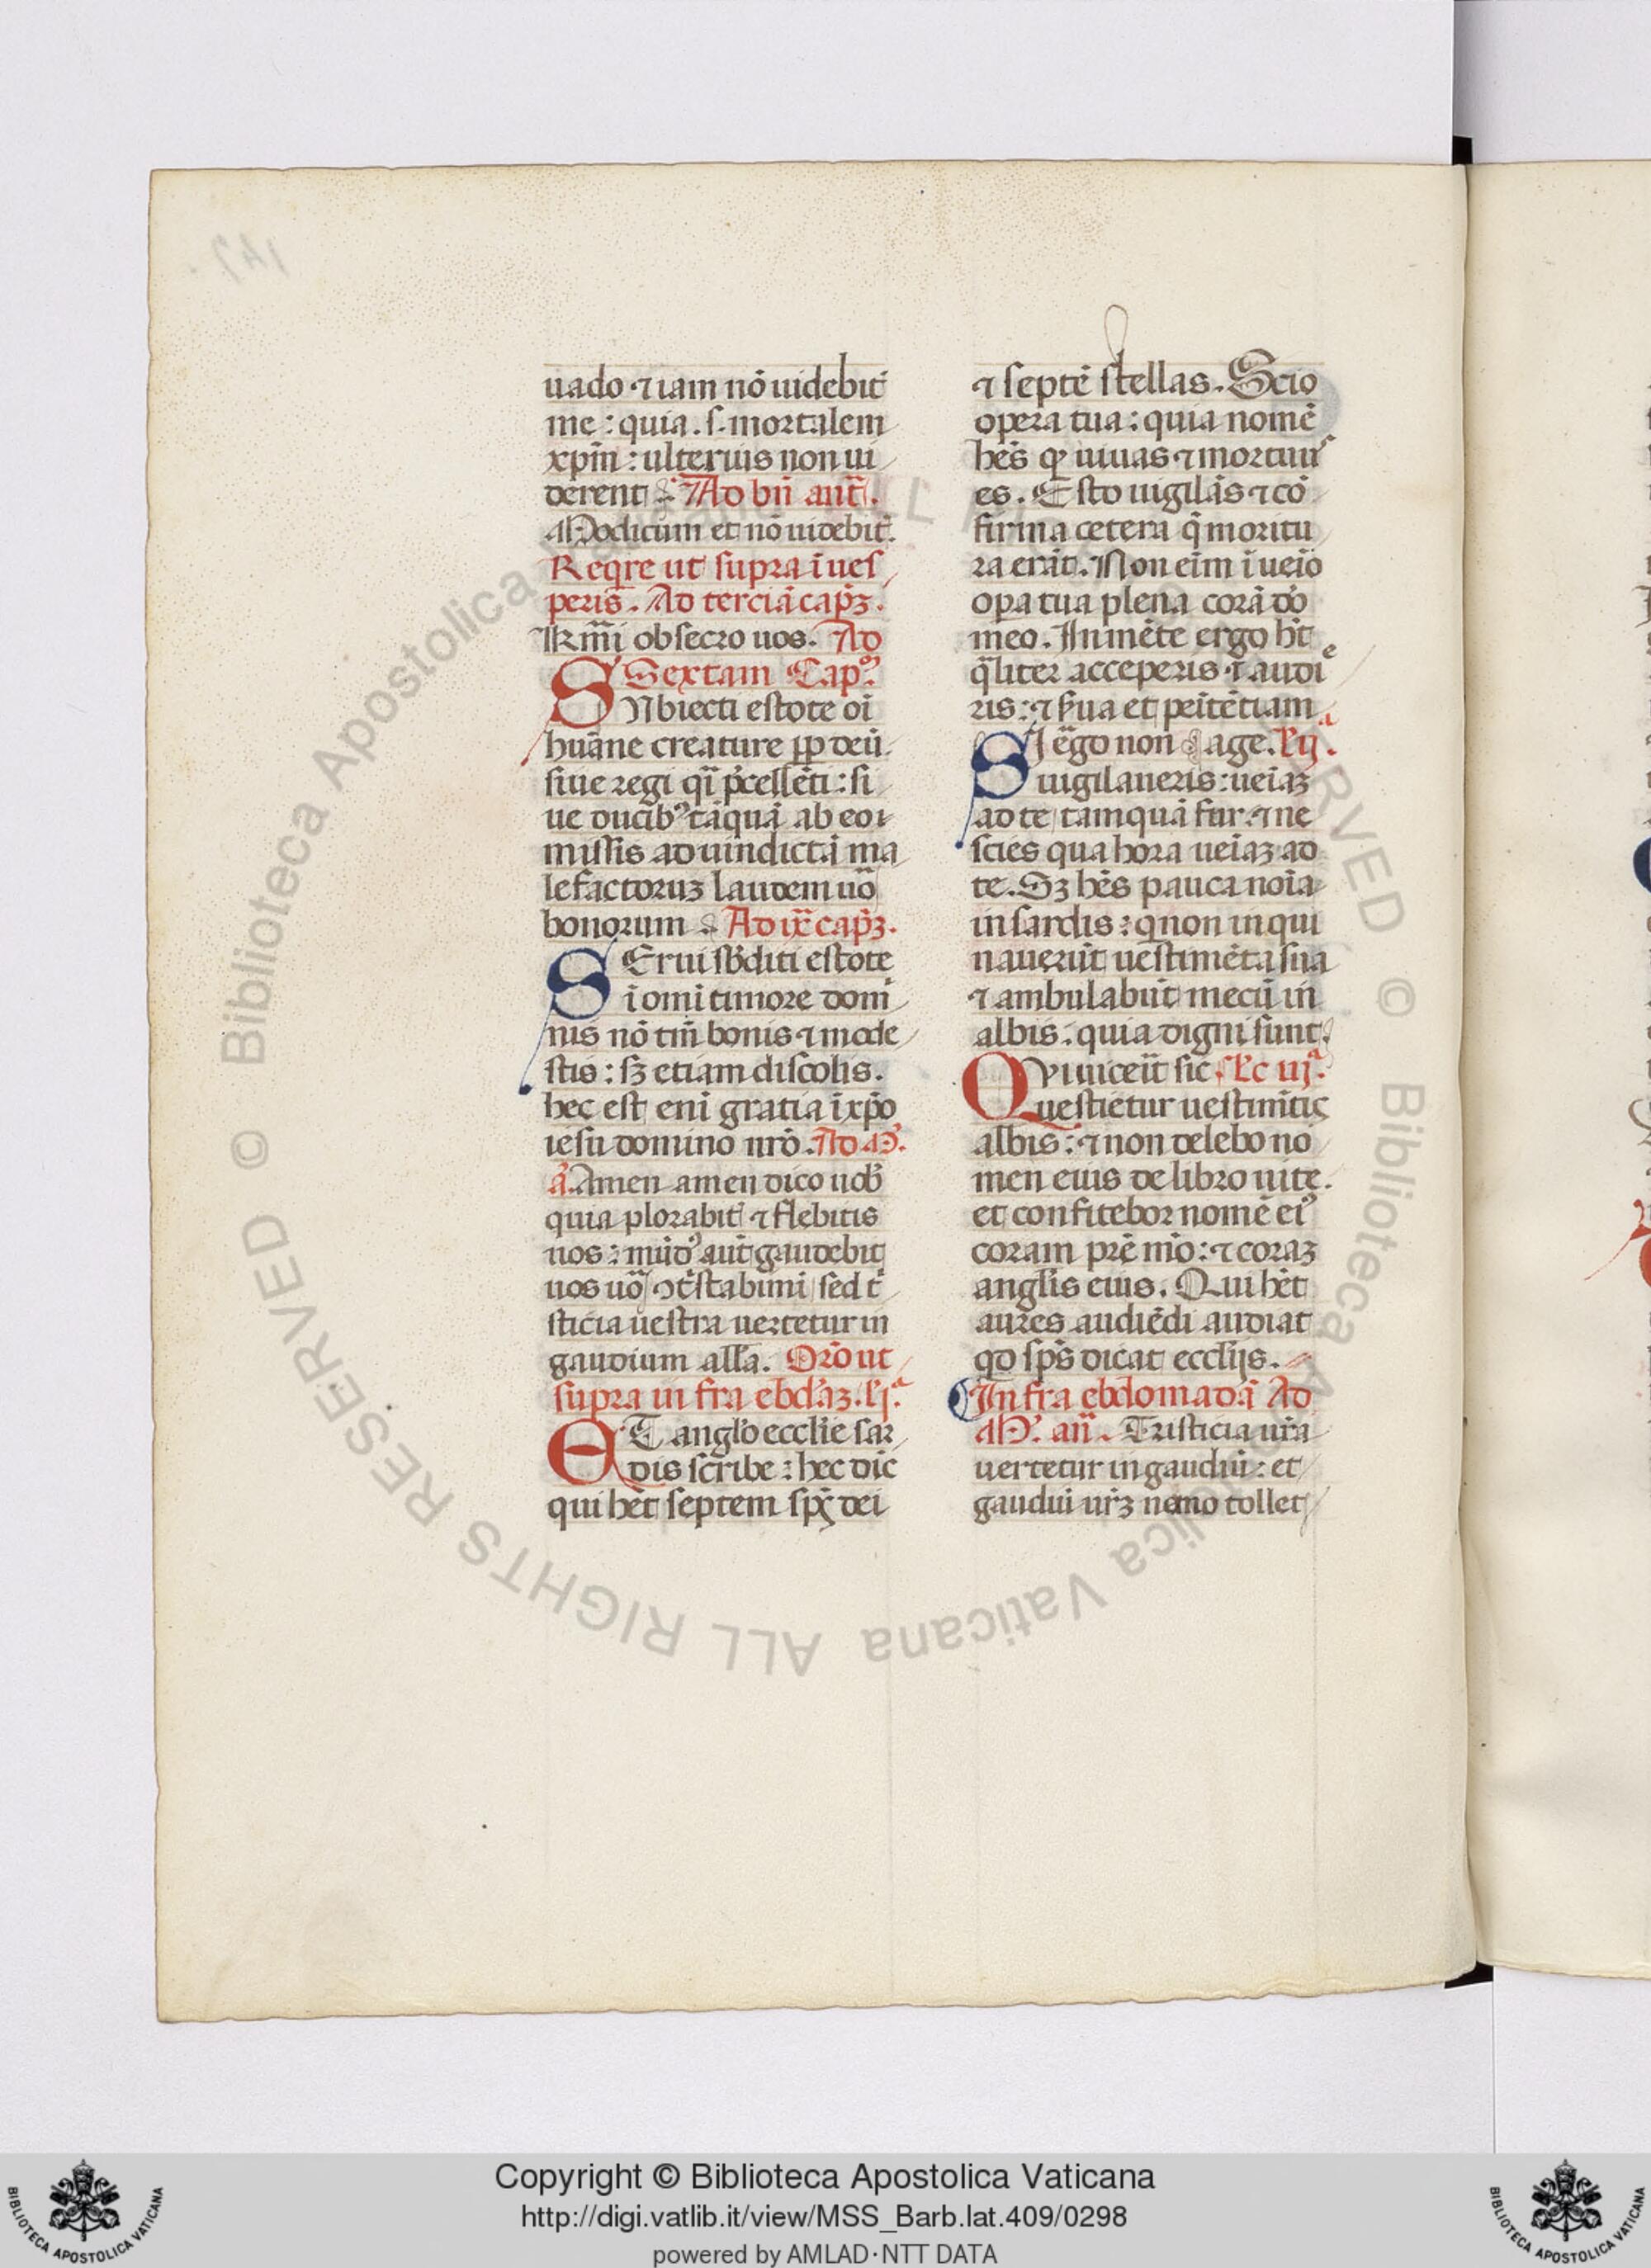 uado ⁊ iam nō uidebit᷑
me : quia . s. mortalem
xp̄m : ulterius non ui
derent Ad bn̄ ant̄.
Modicum et nō uidebit᷑.
Reqre ut supra ī ues
peris. Ad terciā cap̄ꝫ.
Kr̄mi obsecro uos. Ad
Sextam Cap.ꝰ
SUbiecti estote oī
huāne creature ꝓp deū.
siue regi q̄i p̄cellēti : si
ue ducibꝰ tāquā ab eo
missis ad uindictā ma
lefactoruꝫ laudem uō
bonorum Ad ix cap̄ꝫ.
SErui sb̄diti estote
ī omi timore domi
nis nō tm̄ bonis ⁊ mode
stis : sꝫ etiam discolis.
hec est enī gratia ī xp̄o
iesu domino nr̄o. Ad M.
a. Amen amen dico uob̄
quia plorabit᷑ ⁊ flebitis
uos : mūdꝰ aut̄ gaudebit
uos uō ↄt̄stabimī sed t̄
sticia uestra uertetur in
gaudium all̄a. Orō ut
supra in fra ebd̄aꝫ. l̄ j.ª
ET angl̄o eccl̄ie sar
dis scribe : hec dic̄
qui hēt septem sp̄s dei
⁊ septē stellas. Scio
opera tua : quia nomē
hēs ꝙ uiuas ⁊ mortuuˢ
es. Esto uigilās ⁊ cō
firma cetera q̄ moritu
ra erāt. Non eīm īueīo
opa tua plena corā dō
meo. In mēte ergo hēt
q̄liter acceperis ⁊ audi e
ris : ⁊ s̄ua et peītētiam
SI ēgo non age. l̄ ij.ª
uigilaueris : ueīaꝫ
ad te tamquā fur : ⁊ ne
scies qua hora ueīaꝫ ad
te. Sꝫ hēs pauca noīa
in sardis : q non inqui
nauerūt uestimēta sua
⁊ ambulabūt mecū in
albis : quia digni sunt.
QUi uiceīt sic l̄c iij.ª
uestietur uestimt̄is
albis : ⁊ non delebo no
men eius de libro uite.
et confitebor nomē eiꝰ
coram prē mō : ⁊ coraꝫ
angl̄is eius. Qui hēt
aures audiēdi audiat
qd sp̄s dicat eccl̄ijs.
In fra ebdomadā Ad
M. an̄. Tristicia ur̄a
uertetur in gaudiū : et
gaudiū ur̄ꝫ nemo tollet
Copyright © Biblioteca Apostolica Vaticana
http://digi.vatlib.it/view/MSS_Barb.lat.409/0298
powered by AMLAD·NTT DATA
BIBLIOTECA APOSTOLICA VATICANA
BIBLIOTECA APOSTOLICA VATICANA
© Biblioteca Apostolica Vaticana ALL RIGHTS RESERVED
© Biblioteca Apostolica Vaticana ALL RIGHTS RESERVED